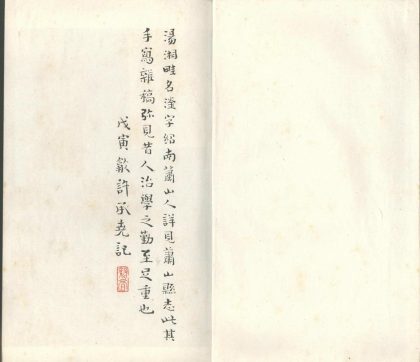 湯湘畦名瀅字紹南蕭山人詳見蕭山縣志此其
手寫雜稿弥見昔人治學之勤至足重也
戊寅歙許承堯記